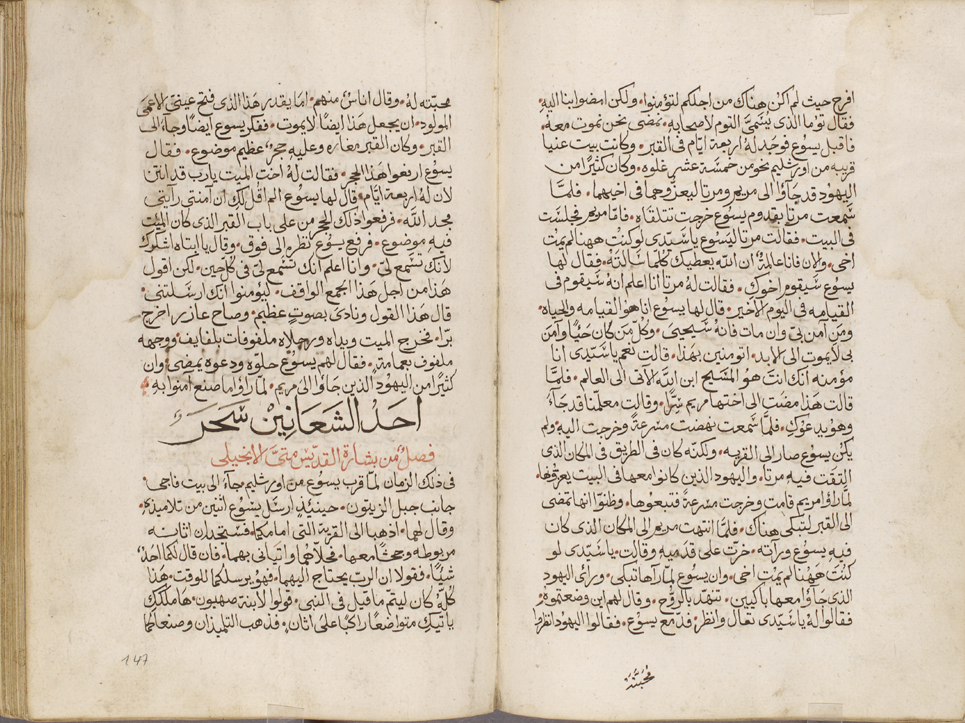 افرح حيث لم اكن هناك من اجلكم لتؤمنوا٠ ولكن امضوا بنا اليه
فقال توما الذى يسمىَّ التوم لاصحابه٠ نمضى نحن نموت معه٠
فاقبل يسوع فوجد لهُ اربعة ايّام فى القبر٠ وكانت بيت عنيا
قريبه من اورشليم نحو من خمسَة عشر غلوه٠ وكان كثيرًا من
اليهود قد جآؤا الى مريم ومرتا ليعزوهما فى اخيهما٠ فلمَّا
سَمعت مرتا بقدوم يسوع خرجت تتلقاه٠ فامّا مريم فجلسَت
فى البيت٠ فقالت مرتا ليسوع ياسَيّدى لو كنت ههنا لم يمت
اخى٠ والان فانا عالمةٌ ان اللّه يعطيك كلما سَالته٠ فقال لها
يسوع سَيقوم اخوكِ٠ فقالت لهُ مرتا أنا اعلم انهُ سَيقوم فى
القيامه فى اليوم الاخير٠ قال لها يسوع انا هو القيامه والحياه٠
ومَن آمن بى وان مات فانهُ سَيحيى٠ وكلّ من كان حيًّا وآمن
بى لا يموت الى الابد٠ اتومنين بهذا٠ قالت نعم ياسَيّدى انا
مؤمنه انك انتَ هو المسَيح ابن اللّه الاتى الى العالم٠ فلمَّا
قالت هَذا مضَت الى اختها مريم سِرًّا٠ وقالت معلمنا قد جآءَ
وهو يدعوكِ٠ فلمَّا سَمعت نهضت مسَرعة وخرجت اليه٠ ولم
يكن يسوع صار الى القريه٠ ولكنّه كان فى الطريق فى المكان الذى
التقت فيه مرتا٠ واليهود الذين كانوا معها فى البيت يعزّونها٠
لمّا راؤا مريم قامت وخرجت مسَرعةً فتبعوها٠ وظنّوا انها تمضى
الى القبر لتبكى هناك٠ فلمَّا انتهت مريم الى المكان الذى كان
فيه يسوع ورآته٠ خرّت على قدميه وقالت٠ ياسَيّدى لو
كنتَ ههُنا لم يمت اخى٠ وان يسوع لمّا رآها تبكى٠ ورآى اليهود
الذى جآؤا معها باكيين٠ تنهّد بالروُّح٠ وقال لهم اين وضعتموه٠
فقالوا لهُ ياسَيّدى تعال وانظر٠ فدمَع يسوع٠ فقالوا اليهود انظروا
محبّتهُ
محبّته لهُ٠ وقال اناسٌ منهم٠ امَا يقدر هَذا الذى فتح عينىَ الاعمى
المولود٠ ان يجعل هَذا ايضًا لا يموت٠ ففكر يسوع ايضًا وجآءَ الى
القبر٠ وكان القبر مغاره وعليهِ حجرٌ عظيم موضوع٠ فقال
يسوع ارفعوا هَذا الحجر٠ فقالت لهُ اخت الميت يارب قد انتن
لان لهُ اربعة ايّام٠ قال لها يسوع الم اقل لكِ ان آمنتى رآيتى
مجد اللّه٠ فرفعوا ذلك الحجر من على باب القبر الذى كان الميت
فيه موضوع٠ فرفع يسوع نظره الى فوق٠ وقال يا ابتاه اشكرك
لانّك تسَمع لىَ٠ وانا اعلم انك تسَمع لىّ فى كلّ حين٠ لكن اقول
هَذا من اجل هَذا الجمع الواقف٠ ليؤمنوا انك ارسَلتنى٠
قال هَذا القول ونادى بصوتٍ عظيم٠ وصاح عازر اخرج
برّا٠ فخرج الميت ويداه ورجلاه ملفوفات بلفايف٠ ووجهه
ملفوف بعمامة٠ فقال لهم يسوع حلّوه ودعوه يمضى٠ وان
كثيرًا من اليهود الذين جآؤا الى مريم٠ لمّا راؤا ما صنع آمنوا به٠
احَدُ الشَعَانِينْ سَحَرَ
فصلٌ من بشارة القدّيس متىَّ الانجيلى
فى ذلك الزمان لمّا قرب يسوع من اورشليم جآءَ الى بيت فاجى٠
جانب جبل الزيتون٠ حينيئذٍ ارسَل يسُوع اثنين من تلاميذه٠
وقال لهما٠ اذهبا الى القرية التى امامكما٠ فسَتجدان اتانه
مربوطه وجحشًا معها٠ فحُلّاهما واتيانى بهما٠ فان قال لكما احَدٌ
شيًّا٠ فقولا ان الرب يحتاج اليهما٠ فهو يرسلكما للوقت٠ هَذا
كلّهُ كان ليتمّ ما قيل فى النبى٠ قولوا لابنة صهيون٠ ها ملككِ
ياتيكِ متواضعًا راكبًا على اتان٠ فذهب التلميذان وصنعا كما
147